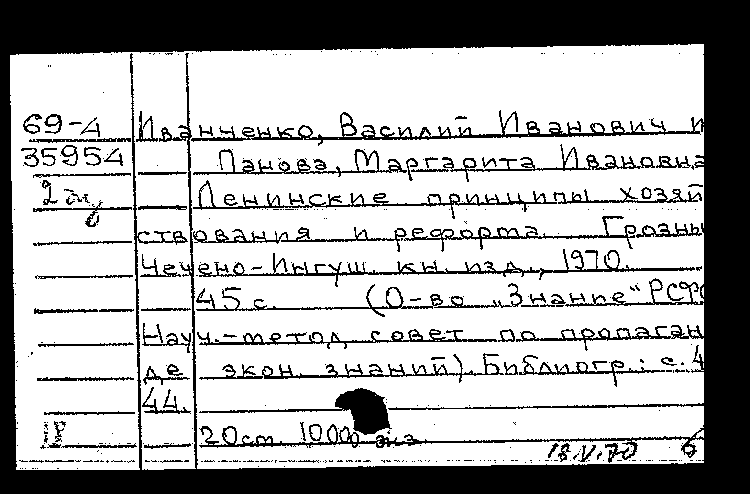 69-4 Иванченко, Василий Иванович и
35954 Панова, Маргарита Ивановна
2 эк Ленинские принципы хозяй
ствования и реформа. Грозны
Чечено-Ингуш. кн. изд., 1970.
45 с. (О-во „Знание" РСФС
Науч.-метод. совет по пропаган
де экон. знаний). Библиогр.: с. 4
44.
20 см. 10000 экз.
18.V.70 б